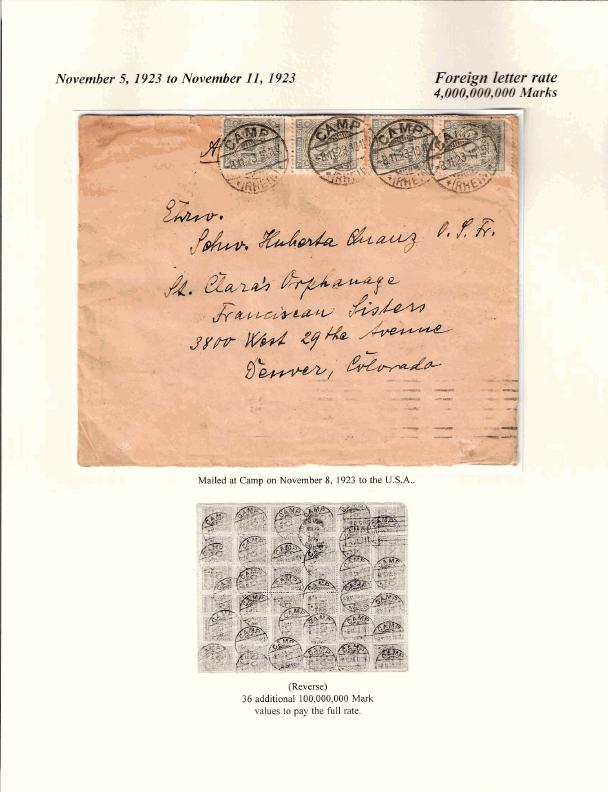 November 5, 1923 to November 11, 1923
Foreign letter rate
4,000,000,000 Marks
CAMP CAMP CAMP
(RHEIN) (RHEIN) (RHEIN) (RHEIN)
Schw. Huberta O. S. Fr.
St. Clara's Orphanage
Franciscan Sisters
3800 West 29the Avenue
Denver, Colorado
Mailed at Camp on November 8, 1923 to the U.S.A..
(Reverse)
36 additional 100,000,000 Mark
values to pay the full rate.